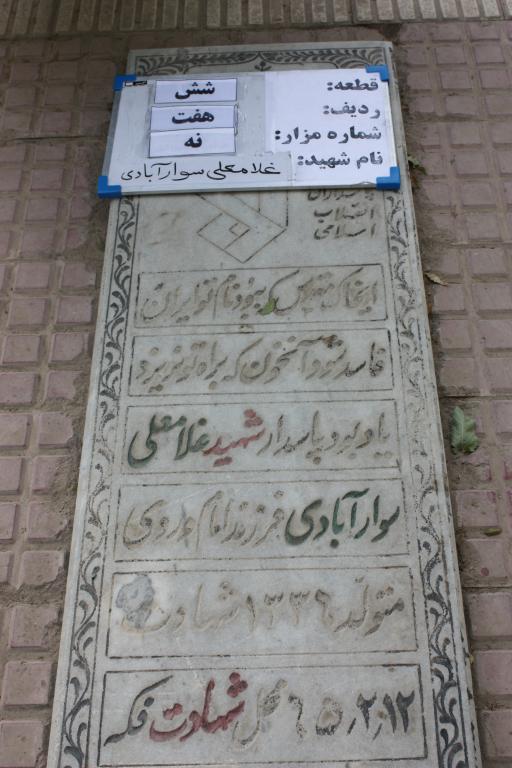 قطعه: شش
ردیف: هفت
شماره مزار: نه
نام شهید: غلامعلی سوارآبادی
پاسداران
انقلاب
اسلامی
ایخاک مقدس که بود نام تو ایران
فاسد شود آنخون که براه تو نریزد
یادبود پاسدار شهید غلامعلی
سوارآبادی فرزند امام وردی
متولد ۱۳۳۶ شهادت
۶۵٫۲٫۱۲ محل شهادت فکه